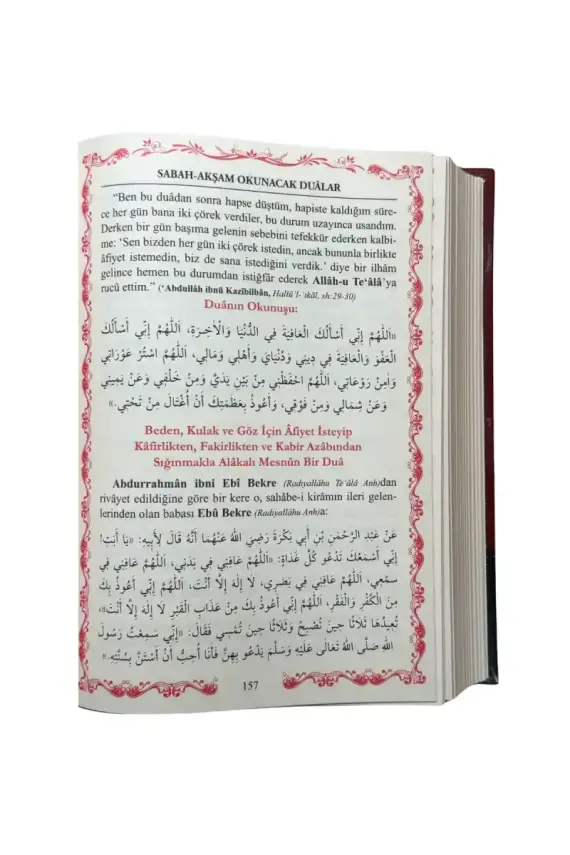 SABAH-AKŞAM OKUNACAK DUÂLAR
“Ben bu duâdan sonra hapse düştüm, hapiste kaldığım süre-
ce her gün bana iki çörek verdiler, bu durum uzayınca usandım.
Derken bir gün başıma gelenin sebebini tefekkür ederken kalbi-
me: ‘Sen bizden her gün iki çörek istedin, ancak bununla birlikte
âfiyet istemedin, biz de sana istediğini verdik.’ diye bir ilhâm
gelince hemen bu durumdan istiğfâr ederek Allâh-u Te‘âlâ’ya
rucû ettim.” (‘Abdullâh ibnü Kazîbilbân, Hallü’l-‘ıkâl, sh:29-30)
Duânın Okunuşu:
«اَللّٰهُمَّ إِنِّي أَسْأَلُكَ الْعَافِيَةَ فِي الدُّنْيَا وَالْاٰخِرَةِ، اَللّٰهُمَّ إِنِّي أَسْأَلُكَ
الْعَفْوَ وَالْعَافِيَةَ فِي دِينِي وَدُنْيَايَ وَأَهْلِي وَمَالِي، اَللّٰهُمَّ اسْتُرْ عَوْرَاتِي
وَاٰمِنْ رَوْعَاتِي، اَللّٰهُمَّ احْفَظْنِي مِنْ بَيْنِ يَدَيَّ وَمِنْ خَلْفِي وَعَنْ يَمِينِي
وَعَنْ شِمَالِي وَمِنْ فَوْقِي، وَأَعُوذُ بِعَظَمَتِكَ أَنْ أُغْتَالَ مِنْ تَحْتِي.»
Beden, Kulak ve Göz İçin Âfiyet İsteyip
Kâfirlikten, Fakirlikten ve Kabir Azâbından
Sığınmakla Alâkalı Mesnûn Bir Duâ
Abdurrahmân ibni Ebî Bekre (Radıyallâhu Te‘âlâ Anh)dan
rivâyet edildiğine göre bir kere o, sahâbe-i kirâmın ileri gelen-
lerinden olan babası Ebû Bekre (Radıyallâhu Anh)a:
عَنْ عَبْدِ الرَّحْمٰنِ بْنِ أَبِي بَكْرَةَ رَضِيَ اللّٰهُ عَنْهُمَا أَنَّهُ قَالَ لِأَبِيهِ: «يَا أَبَتِ!
إِنِّي أَسْمَعُكَ تَدْعُو كُلَّ غَدَاةٍ: «اَللّٰهُمَّ عَافِنِي فِي بَدَنِي، اَللّٰهُمَّ عَافِنِي فِي
سَمْعِي، اَللّٰهُمَّ عَافِنِي فِي بَصَرِي، لَا إِلٰهَ إِلَّا أَنْتَ، اَللّٰهُمَّ إِنِّي أَعُوذُ بِكَ
مِنَ الْكُفْرِ وَالْفَقْرِ، اَللّٰهُمَّ إِنِّي أَعُوذُ بِكَ مِنْ عَذَابِ الْقَبْرِ لَا إِلٰهَ إِلَّا أَنْتَ»،
تُعِيدُهَا ثَلَاثًا حِينَ تُصْبِحُ وَثَلَاثًا حِينَ تُمْسِي فَقَالَ: «إِنِّي سَمِعْتُ رَسُولَ
اللّٰهِ صَلَّى اللّٰهُ تَعَالٰى عَلَيْهِ وَسَلَّمَ يَدْعُو بِهِنَّ فَأَنَا أُحِبُّ أَنْ أَسْتَنَّ بِسُنَّتِهِ.»
157